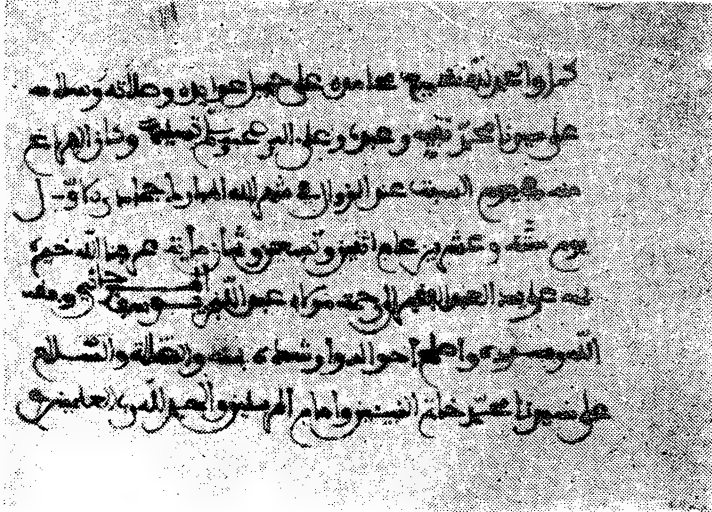 كمل والحمد لله بجميع محامده على جميل عوائده وصلاته وسلامه
على سيدنا محمد نبيه وعبده وعلى آله وصحبه وسلم تسليما وكان الفراغ
منه في يوم السبت عند الزوال في شهر الله المبارك جمادى الأول
يوم ستة وعشرين عام اثنين وتسعين وثمان مائة عرفنا الله خيره
على يد العبد الفقير إلى رحمة مولاه عبد الله بن يوسف وفقه
الله وأصلح أحواله والصلاة والسلام
على سيدنا محمد خاتم النبيين وإمام المرسلين والحمد لله رب العلمين